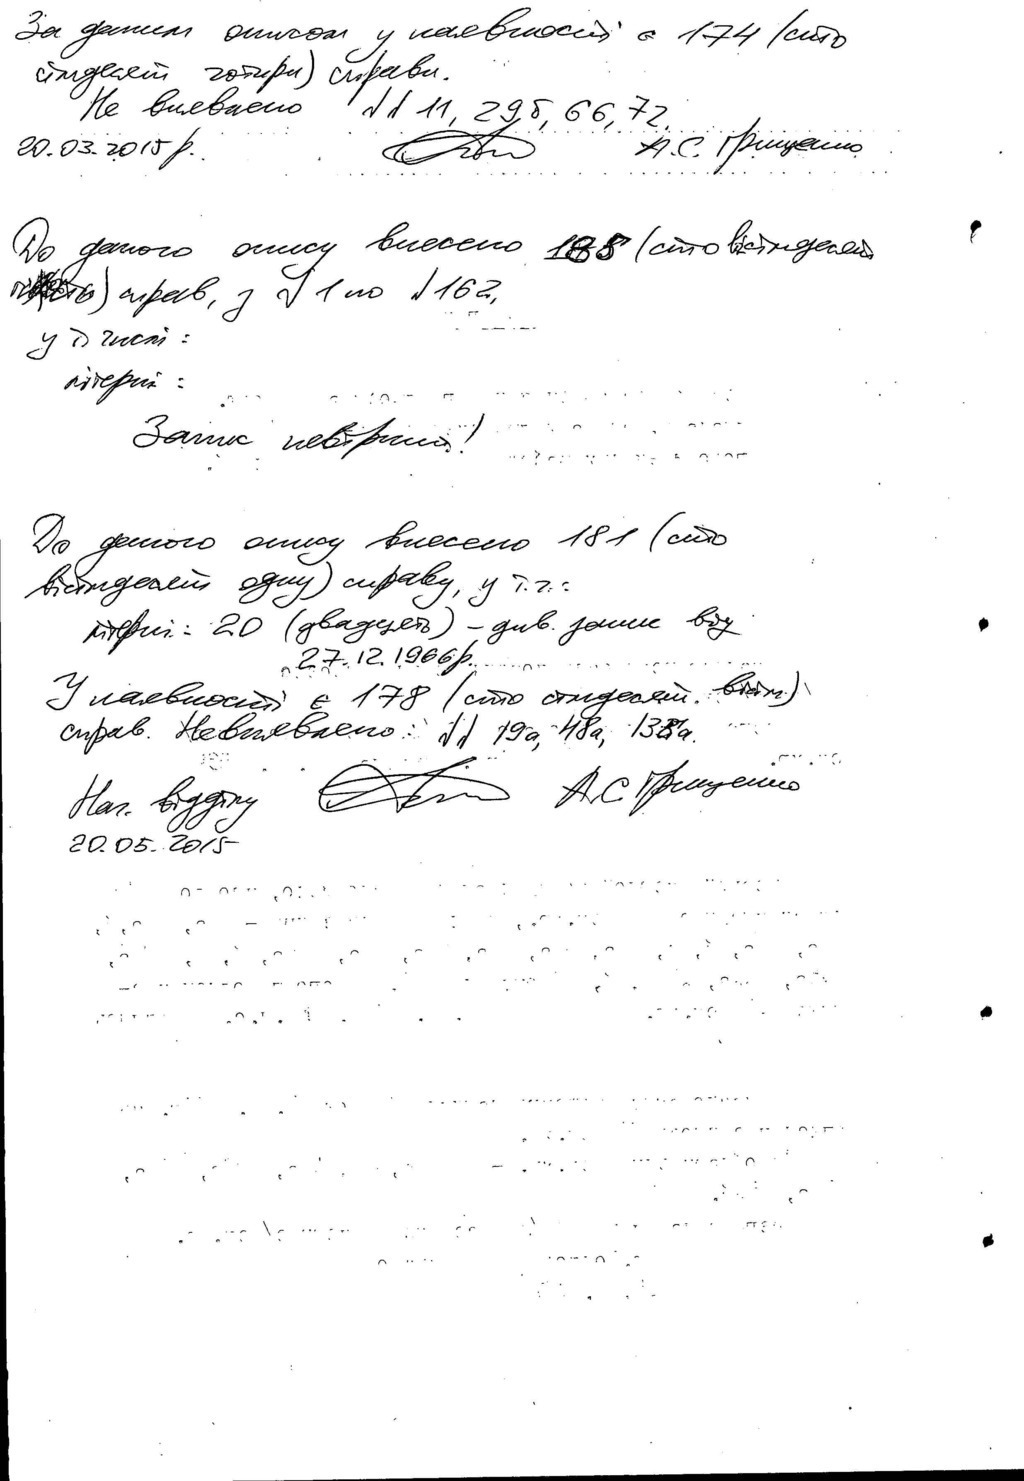 За даним описом у наявності є 174 (сто
сімдесят чотири) справи.
Не виявлено №№ 11, 29б, 66, 72
20.03.2015 р. А.С. Грищенко
До даного опису внесено 185 (сто вісімдесят
) справ, з № 1 по № 162,
у т. числі:
літерні:
Запис невірний!
До даного опису внесено 181 (сто
вісімдесят одну) справу, у т.ч.:
літерні: 20 (двадцять) – див. запис від
27.12.1966 р.
У наявності є 178 (сто сімдесят вісім)
справ. Не виявлено: №№ 19а, 48а, 138а.
Нач. відділу А.С Грищенко
20.05.2015